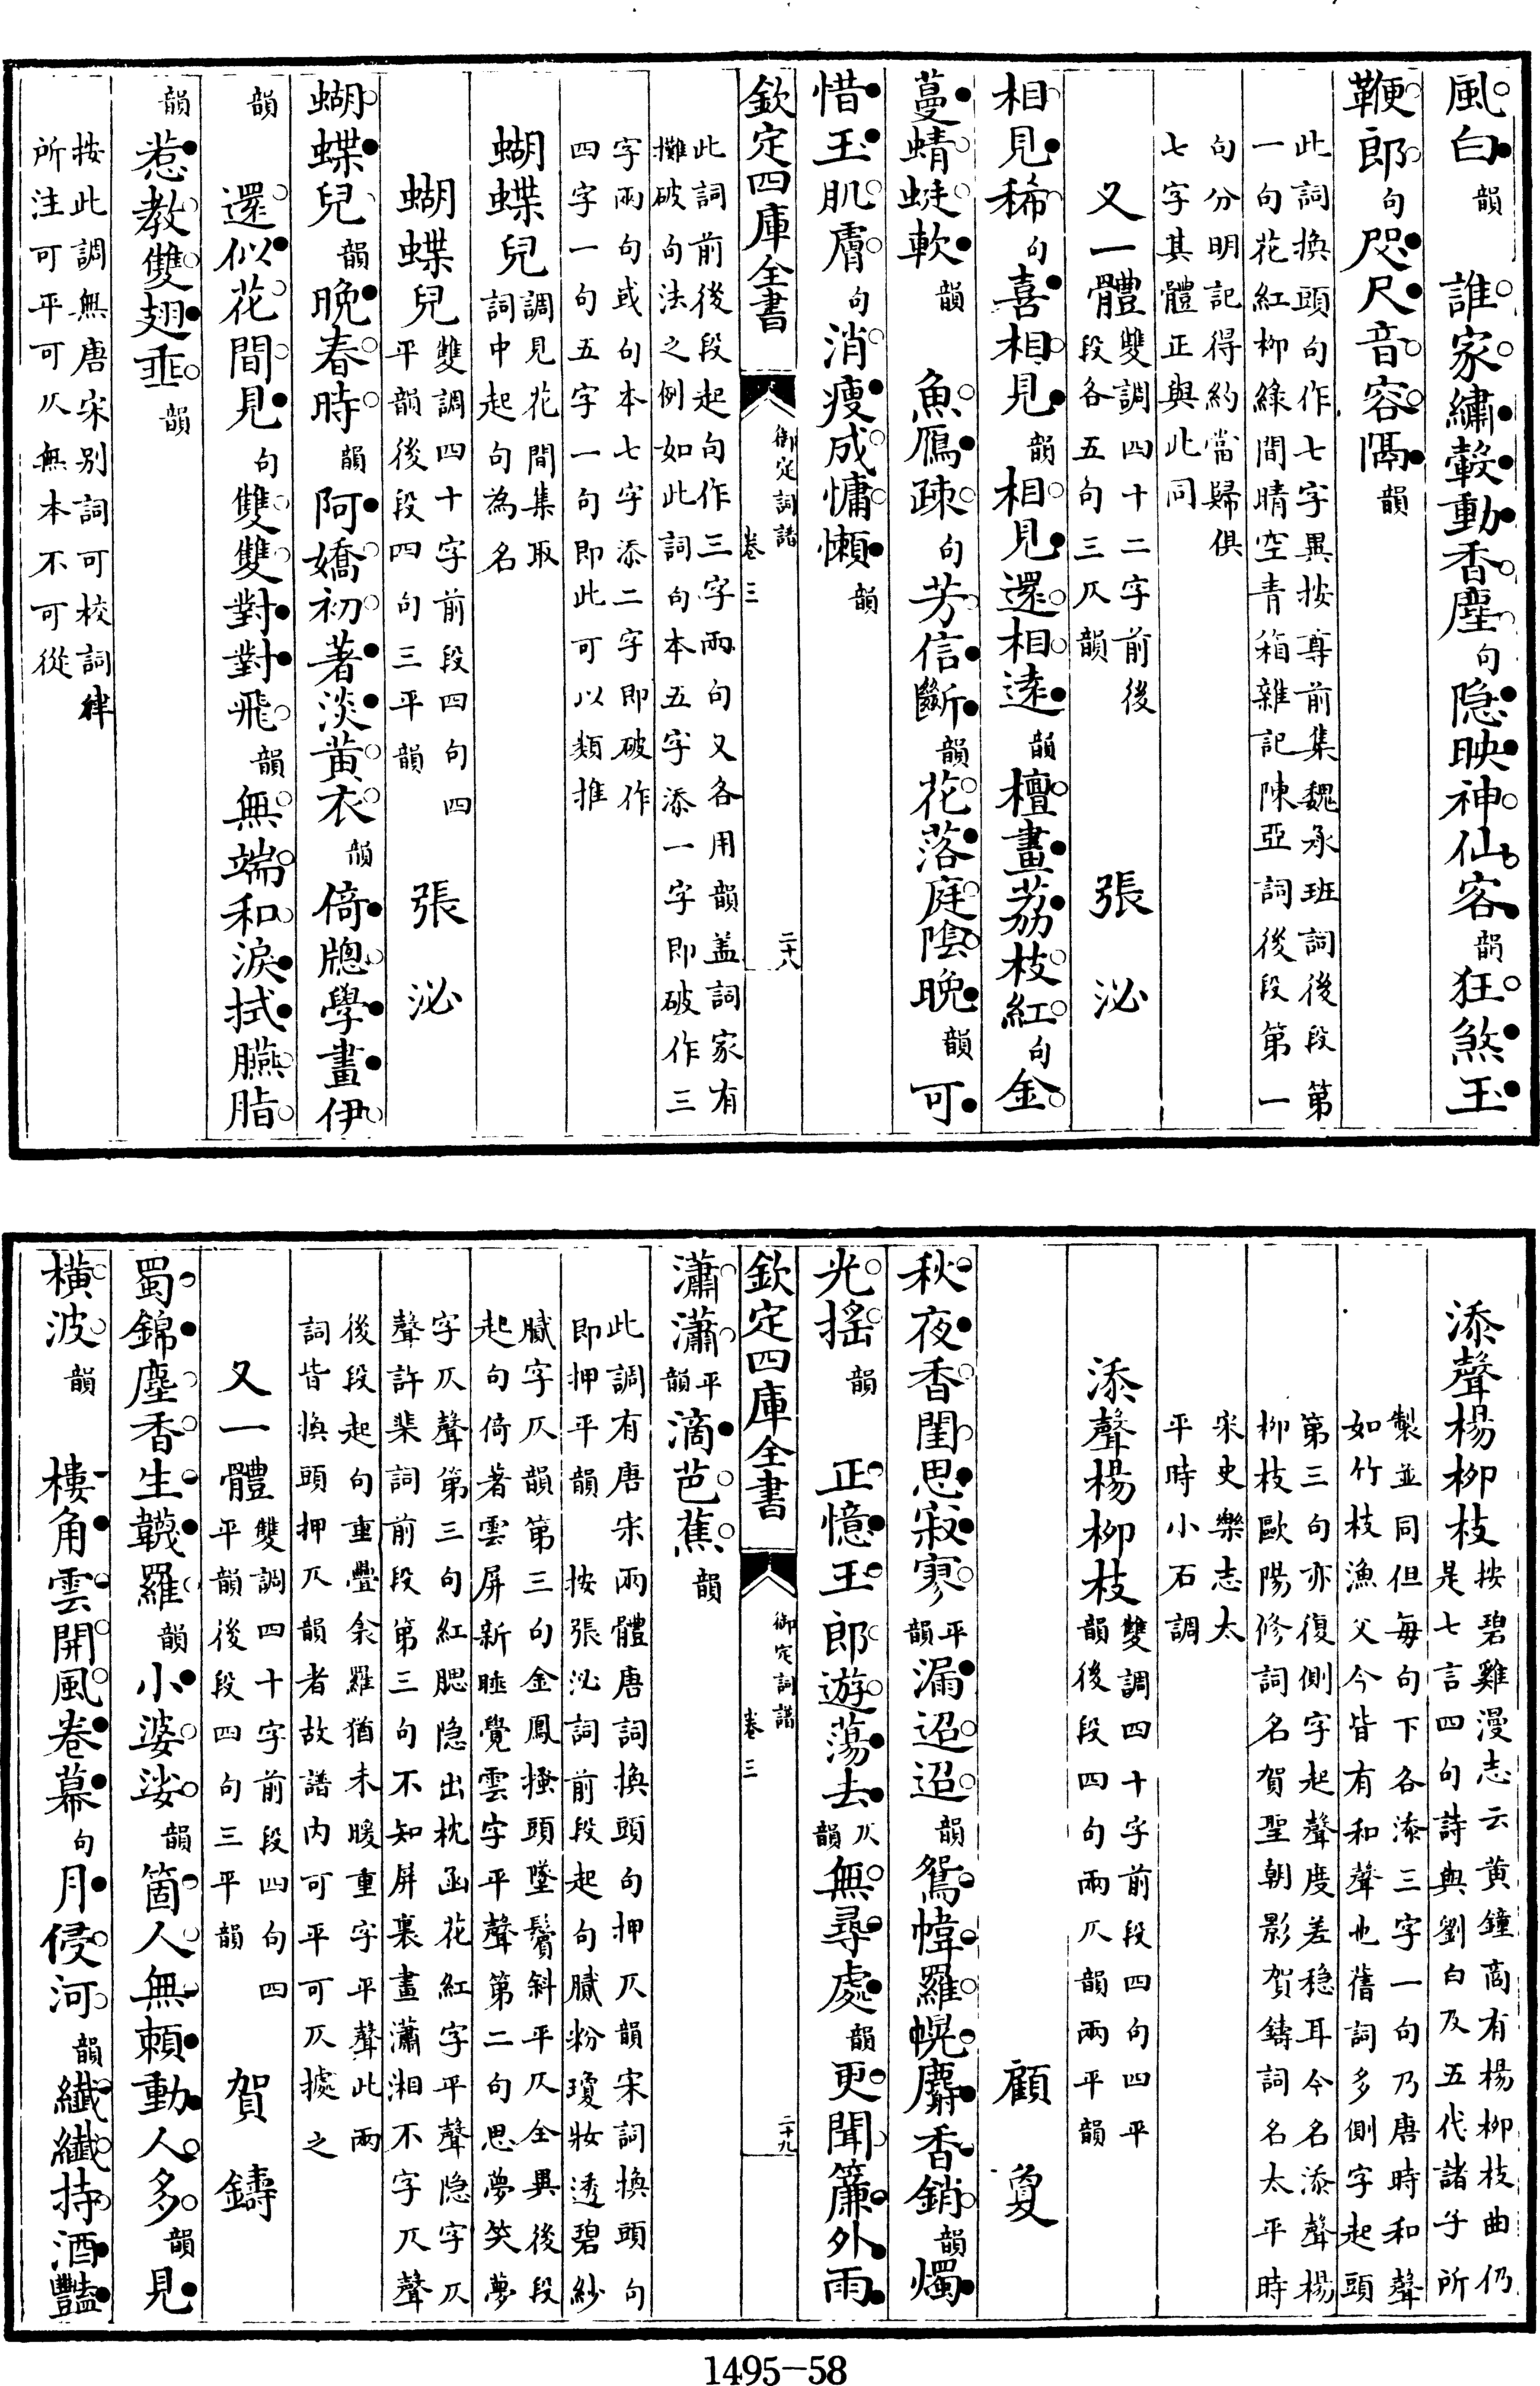 風白韻　誰家繡轂動香塵句隐映神仙客韻狂煞玉
鞭郎句咫尺音容隔韻
此詞換頭句作七字異按尊前集魏承班詞後段第
一句花紅柳綠間晴空青箱雜記陳亞詞後段第一
句分明記得約當歸俱
七字其體正與此同
又一體雙調四十二字前後
段各五句三仄韻　張泌
相見稀句喜相見韻相見還相遠韻檀畫荔枝紅句金
蔓蜻蜓軟韻　魚鴈疎句芳信斷韻花落庭陰晚韻可
惜玉肌膚句消瘦成慵懶韻
欽定四庫全書　御定詞譜　卷三　二十八
此詞前後段起句作三字兩句又各用韻盖詞家有
攤破句法之例如此詞句本五字添一字即破作三
字兩句或句本七字添二字即破作
四字一句五字一句即此可以類推
蝴蝶兒調見花間集取
詞中起句為名
蝴蝶兒雙調四十字前段四句四
平韻後段四句三平韻　張泌
蝴蝶兒韻晚春時韻阿嬌初著淡黄衣韻倚牕學畫伊
韻　還似花間見句雙雙對對飛韻無端和淚拭臙脂
韻惹教雙翅垂韻
按此調無唐宋别詞可校詞律
所注可平可仄無本不可從
添聲楊柳枝按碧雞漫志云黄鐘商有楊柳枝曲仍
是七言四句詩與劉白及五代諸子所
製並同但每句下各添三字一句乃唐時和聲
如竹枝漁父今皆有和聲也舊詞多側字起頭
第三句亦復側字起聲度差穏耳今名添聲楊
柳枝歐陽修詞名賀聖朝影賀鑄詞名太平時
宋史樂志太
平時小石調
添聲楊柳枝雙調四十字前段四句四平
韻後段四句兩仄韻兩平韻
顧敻
秋夜香閨思寂寥平韻漏迢迢韻鴛幃羅幌麝香銷韻燭
光搖韻　正憶玉郎遊蕩去仄韻無尋處韻更聞簾外雨
欽定四庫全書　御定詞譜　卷三　二十九
瀟瀟平韻滴芭蕉韻
此調有唐宋兩體唐詞換頭句押仄韻宋詞換頭句
即押平韻　按張泌詞前段起句膩粉瓊妝透碧紗
膩字仄韻第三句金鳳搔頭墜鬢斜平仄全異後段
起句倚著雲屏新睡覺雲字平聲第二句思夢笑夢
字仄聲第三句紅腮隐出枕函花紅字平聲隐字仄
聲許棐詞前段第三句不知屏裏畫瀟湘不字仄聲
後段起句重疊衾羅猶未暖重字平聲此兩
詞皆換頭押仄韻者故譜内可平可仄據之
又一體雙調四十字前段四句四
平韻後段四句三平韻　賀鑄
蜀錦塵香生韈羅韻小婆娑韻箇人無賴動人多韻見
橫波韻　樓角雲開風卷幕句月侵河韻纖纖持酒豔
1495-58